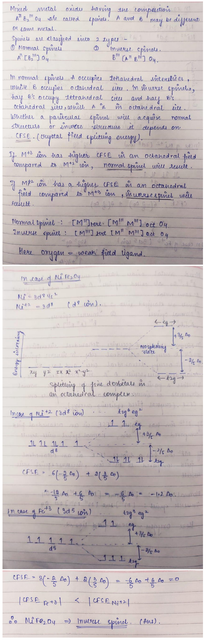 Mixed metal oxides having are composition
A^II B2^III O4 are called spinels. A and B may be different
or same metal.
Spinels are divided into 2 types -
① Normal spinels ② Inverse spinels.
A^II B2^III O4 B^III [A^II B^III] O4
In normal spinels, A occupies tetrahedral interstices,
while B occupies octahedral sites. In inverse spinels,
half B's occupy tetrahedral sites and half B's
octahedral sites while A is in octahedral site.
Whether a particular spinel will acquire normal
structure or inverse structure is depends on
CFSE (crystal field splitting energy)
If M+3 ion has higher CFSE in an octahedral field
compared to M+2 ion, normal spinel will result.
If M2+ ion has a higher CFSE in an octahedral
field compared to M+3 ion, inverse spinel will
result.
Normal Spinel : [M^II]tet [M^III M^III]oct O4
Inverse spinel : [M^III]tet [M^II M^III]oct O4
Here oxygen = weak field ligand.
In case of NiFe2O4
Energy increasing
xy yz zx x²-y²
Splitting of five d-orbitals in
an octahedral complex.
In case of Ni+2 (3d8 ion)
t2g6 eg2
eg
+3/5 Δo
-2/5 Δo
t2g
d8
CFSE = 6(-2/5 Δo) + 2(3/5 Δo)
= -12/5 Δo + 6/5 Δo = -6/5 Δo = -1.2 Δo
In case of Fe+3 (3d5 ion)
t2g3 eg2
eg
+3/5 Δo
-2/5 Δo
t2g
d5
CFSE = 3(-2/5 Δo) + 2(3/5 Δo) = -6/5 Δo + 6/5 Δo = 0
|CFSE Fe+3| < |CFSE Ni+2|
∴ NiFe2O4 ⇒ Inverse spinel (Ans).